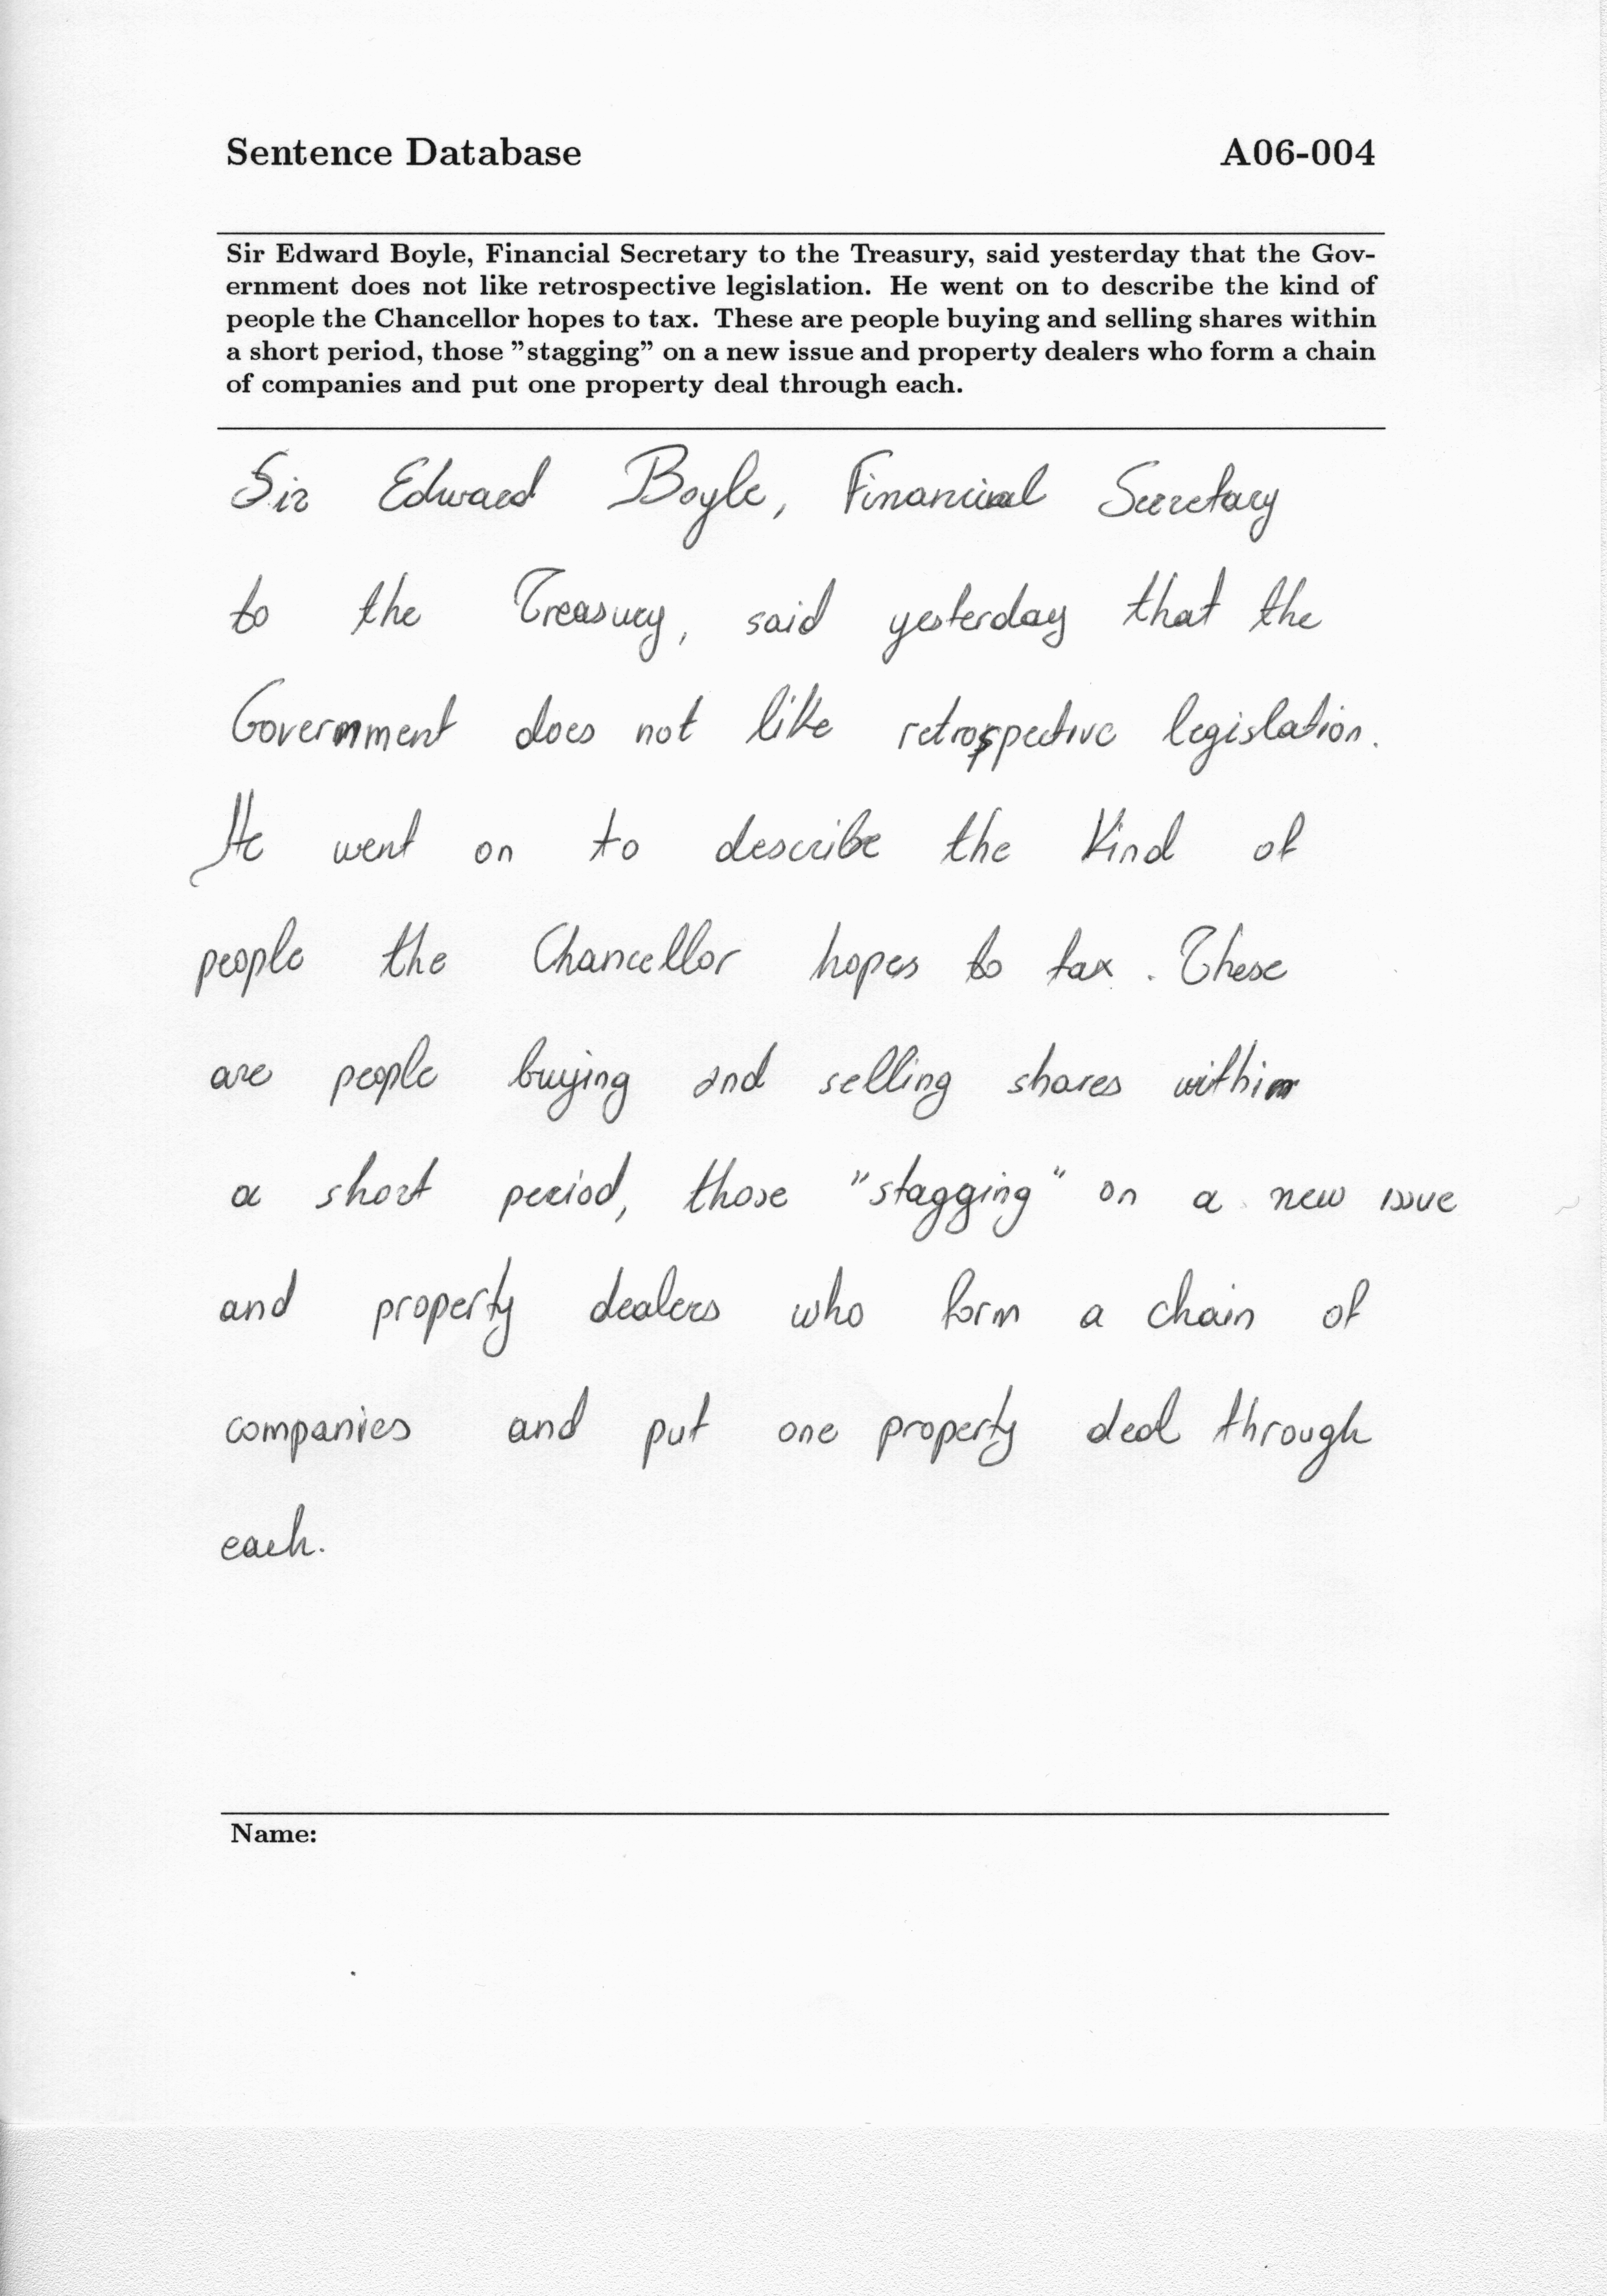 Sentence Database A06-004
Sir Edward Boyle, Financial Secretary to the Treasury, said yesterday that the Gov-
ernment does not like retrospective legislation. He went on to describe the kind of
people the Chancellor hopes to tax. These are people buying and selling shares within
a short period, those ”stagging” on a new issue and property dealers who form a chain
of companies and put one property deal through each.
Sir Edward Boyle, Financial Secretary
to the Treasury, said yesterday that the
Government does not like retrospective legislation.
He went on to describe the kind of
people the Chancellor hopes to tax. These
are people buying and selling shares within
a short period, those "stagging" on a new issue
and property dealers who form a chain of
companies and put one property deal through
each.
Name: